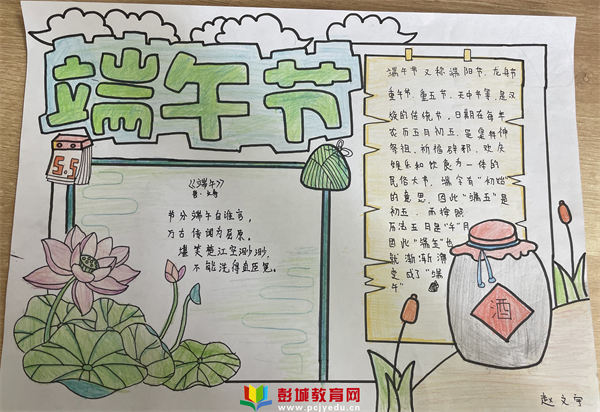 端午节
5.5
《端午》
唐·文秀
节分端午自谁言,
万古传闻为屈原。
堪笑楚江空渺渺,
不能洗得直臣冤。
端午节又称端阳节、龙舟节
重午节、重五节、天中节等,是汉
族的传统节,日期在每年
农历五月初五,是集拜神
祭祖、祈福辟邪、欢庆
娱乐和饮食为一体的
民俗大节,端字有"初始"
的意思,因此"端五"是
初五。而按照
历法五月是"午"月
因此"端五"也
就渐渐演
变成了"端
午"
酒
赵文宇
彭城教育网
www.pcjyedu.cn